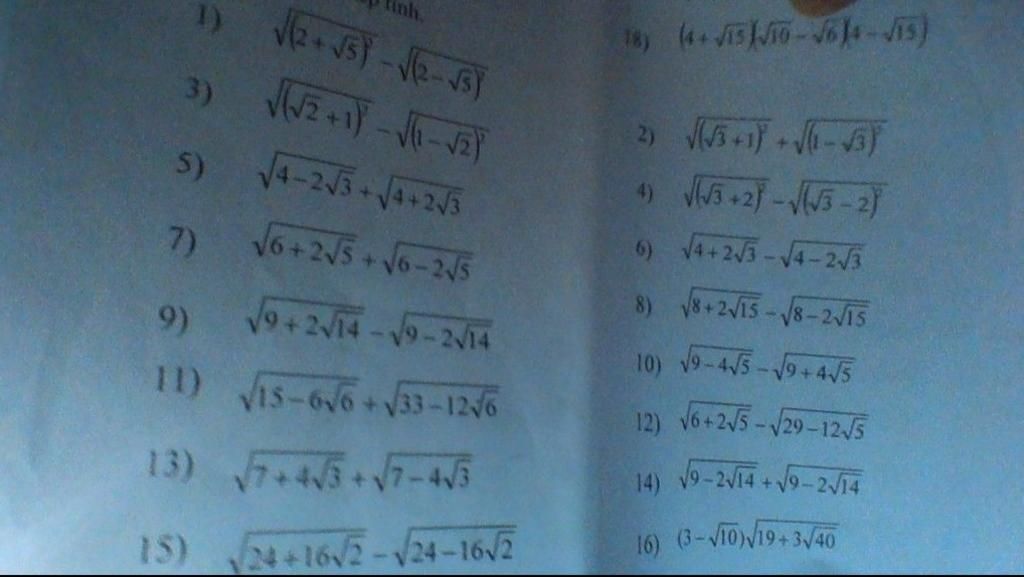 tính.
1) √(2 + √5)² − √(2 − √5)²
3) √(√2 + 1)² − √(1 − √2)²
5) √4 − 2√3 + √4 + 2√3
7) √6 + 2√5 + √6 − 2√5
9) √9 + 2√14 − √9 − 2√14
11) √15 − 6√6 + √33 − 12√6
13) √7 + 4√3 + √7 − 4√3
15) √24 + 16√2 − √24 − 16√2
18) (4 + √15)(√10 − √6)(4 − √15)
2) √(√3 + 1)² + √(1 − √3)²
4) √(√3 + 2)² − √(√3 − 2)²
6) √4 + 2√3 − √4 − 2√3
8) √8 + 2√15 − √8 − 2√15
10) √9 − 4√5 − √9 + 4√5
12) √6 + 2√5 − √29 − 12√5
14) √9 − 2√14 + √9 − 2√14
16) (3 − √10)√19 + 3√40